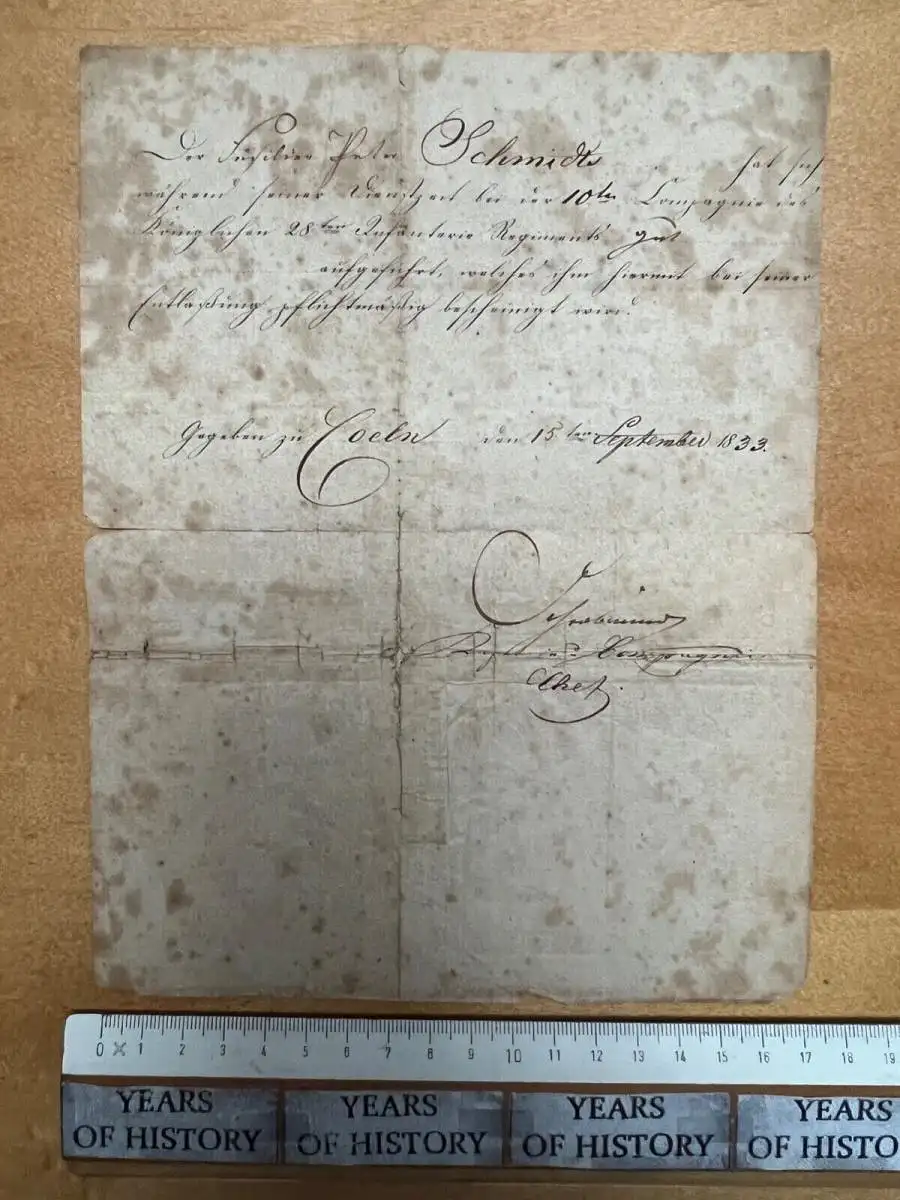 Der Füsilier Peter Schmidt hat sich
während seiner Dienstzeit bei der 10ten Compagnie des
Königlichen 28ten Infanterie Regiments gut
aufgeführt, welches ihm hiermit bei seiner
Entlaßung pflichtmäßig bescheinigt wird.
Gegeben zu Coeln den 15ten September 1833.
Compagnie
Chef.
0 1 2 3 4 5 6 7 8 9 10 11 12 13 14 15 16 17 18 19
YEARS YEARS YEARS YEARS
OF HISTORY OF HISTORY OF HISTORY OF HISTO